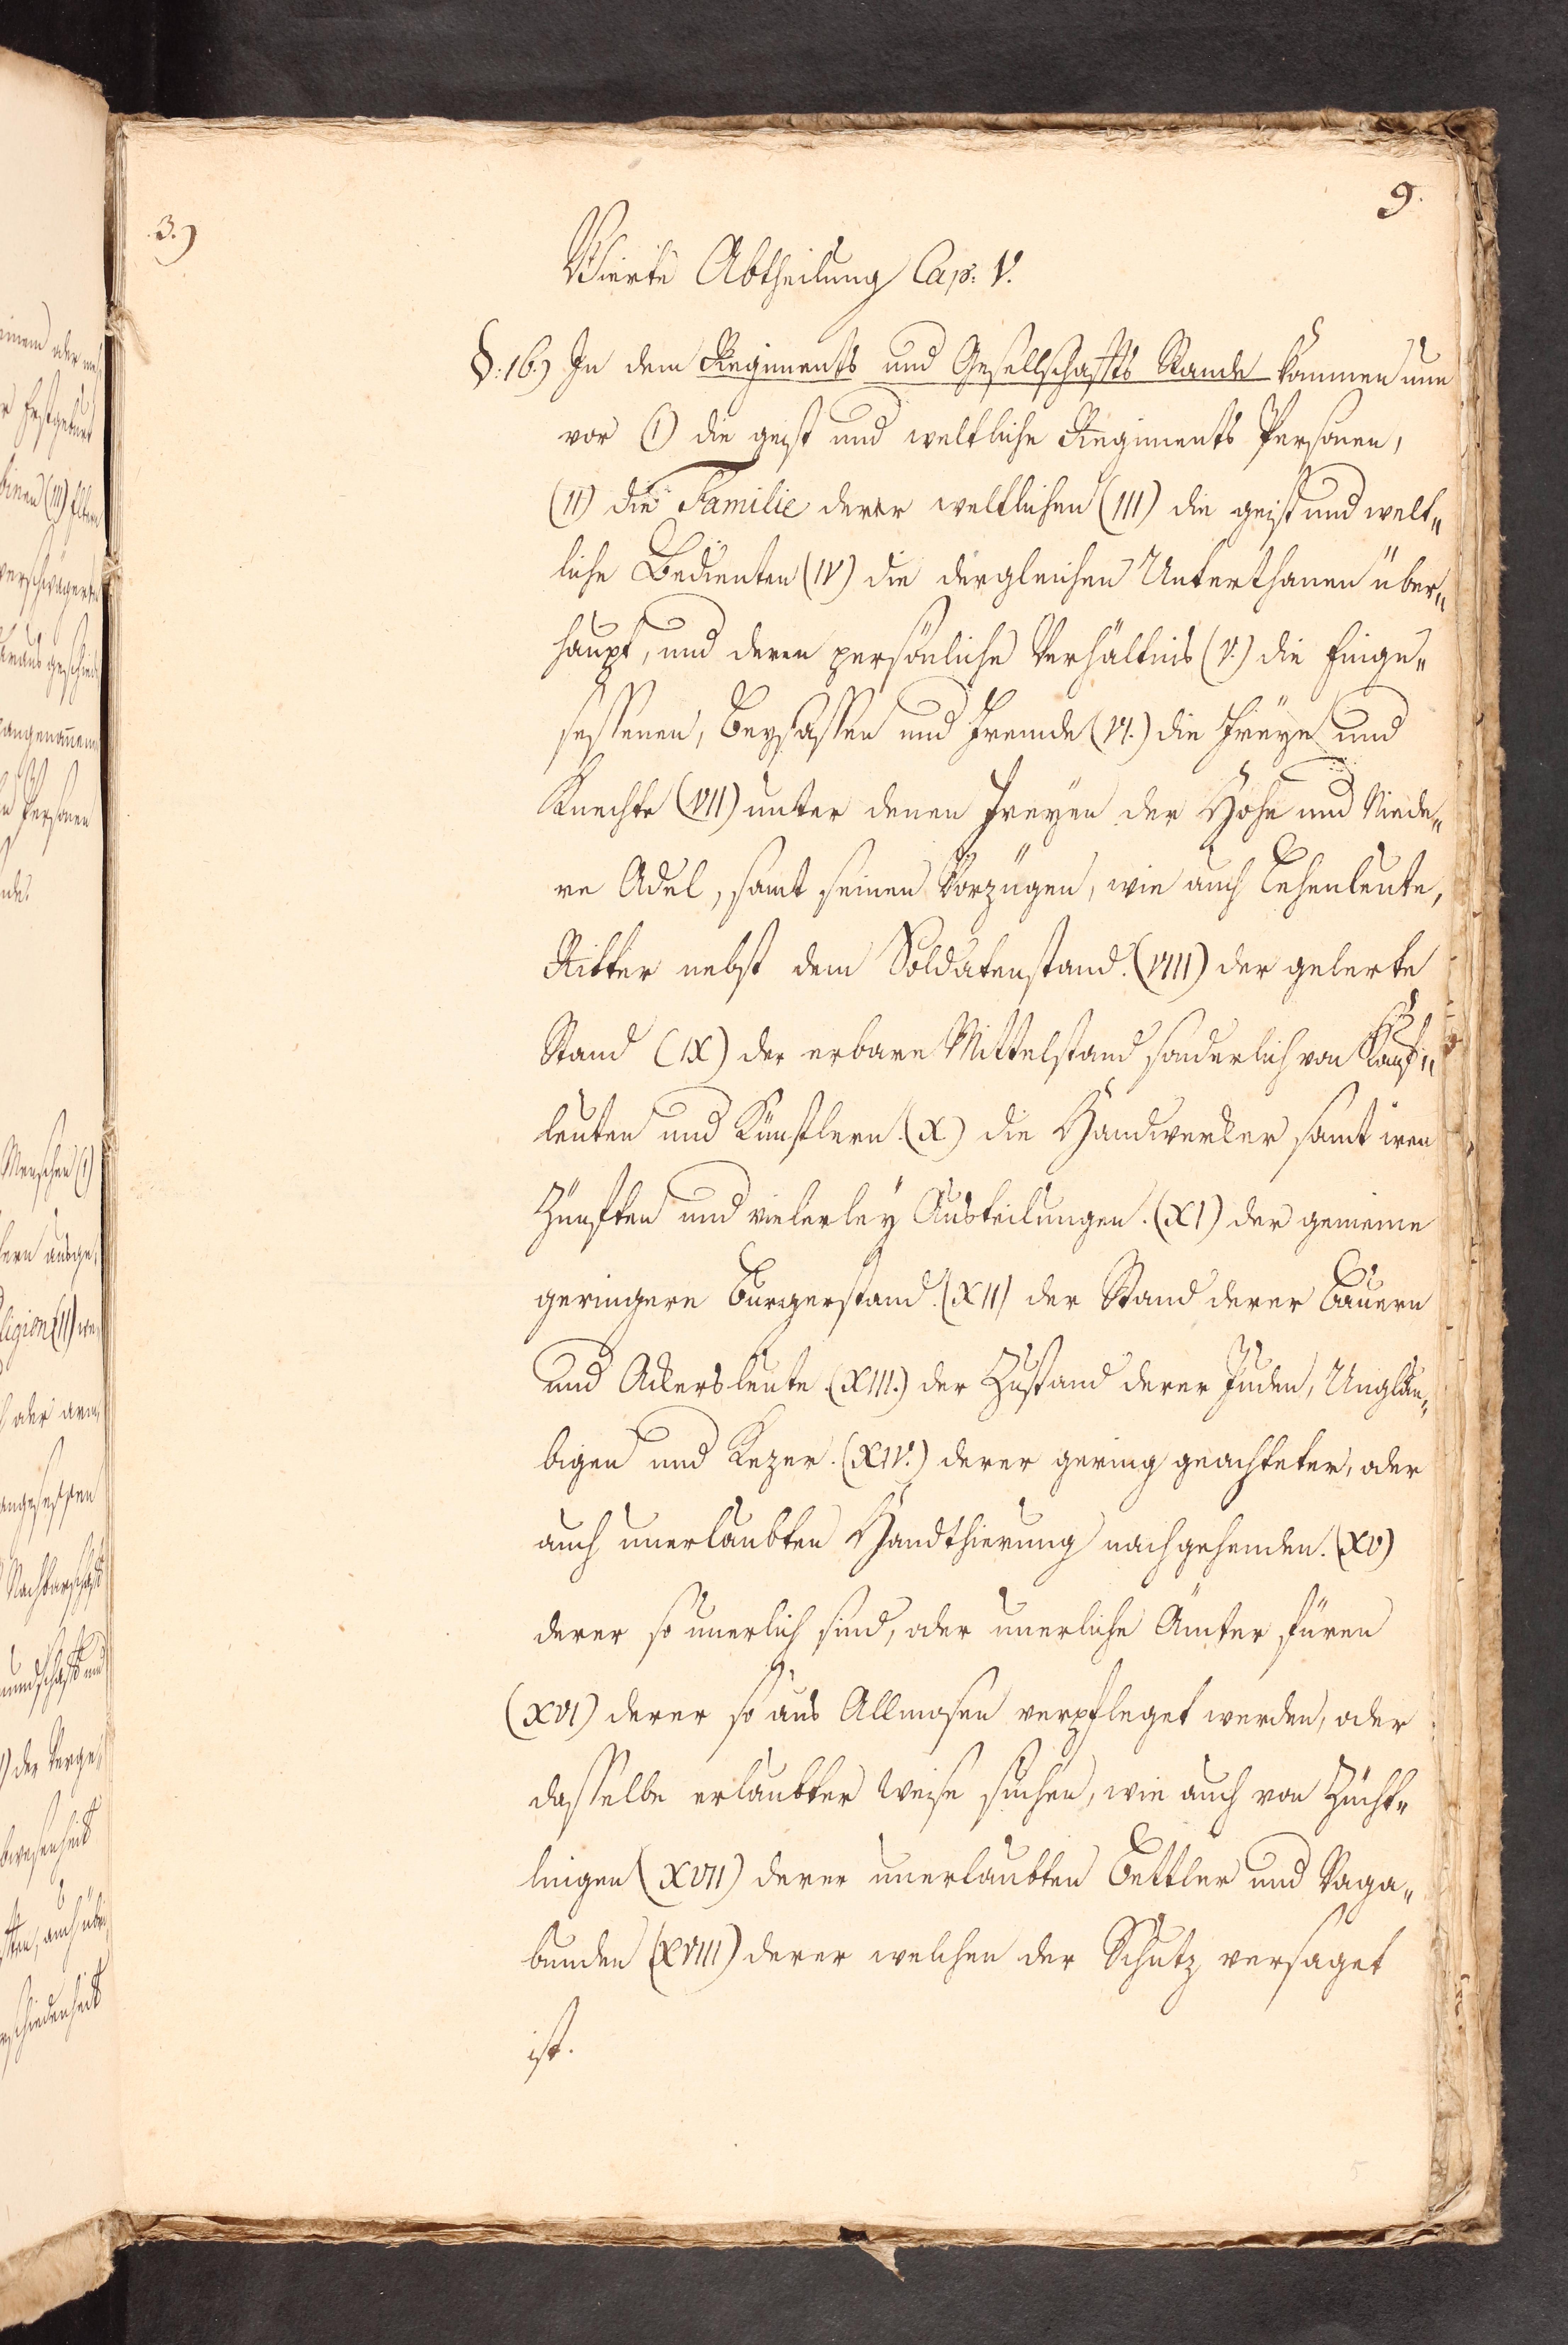 9.
3.)
Vierte Abtheilung Cap: V.
§. 16.) In dem Regiments und Gesellschaffts Stande kommen nun
vor (I) die geist und weltliche Regiments Personen,
(II) die Familie derer weltlichen (III) die geist und welt„
liche Bedienten (IV) die dergleichen Unterthanen über„
haupt, und deren persönliche Verhältnis (V.) die Einge„
sessenen, Beysassen und Fremde (VI.) die Freye und
Knechte (VII) unter denen Freyen der Hohe und Niede„
re Adel, samt seinen Vorzügen, wie auch Lehenleute,
Ritter nebst dem Soldatenstand. (VIII) der gelerte
Stand (IX) der erbare Mittelstand sonderlich von Kauf„
leuten und Künstlern. (X.) die Handwerker samt iren
Zünften und vielerley Austeilungen. (XI) der gemeine
geringere Burgerstand. (XII) der Stand derer Bauern
und Ackersleute. (XIII.) der Zustand derer Juden, Unglau„
bigen und Kezer. (XIV.) derer gering geachteter, oder
auch unerlaubten Handthierung nachgehenden. (XV)
derer so unerlich sind, oder unerliche Ämter füren
(XVI) derer so aus Allmosen verpfleget werden, oder
dasselbe erlaubter Weise suchen, wie auch von Zücht„
lingen (XVII) derer unerlaubten Bettler und Vaga„
bunden (XVIII) derer welchen der Schutz versaget
ist.